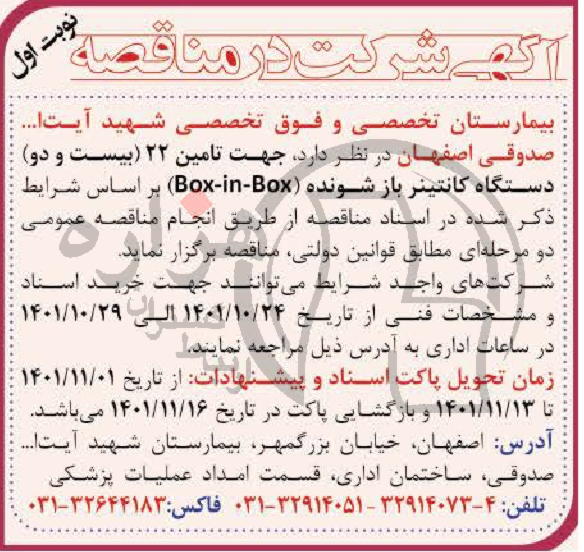 نوبت اول
آگهی شرکت در مناقصه
بیمارستان تخصصی و فوق تخصصی شهید آیت‌ا...
صدوقی اصفهان در نظر دارد، جهت تامین ۲۲ (بیست و دو)
دستگاه کانتینر باز شونده (Box-in-Box) بر اساس شرایط
ذکر شده در اسناد مناقصه از طریق انجام مناقصه عمومی
دو مرحله‌ای مطابق قوانین دولتی، مناقصه برگزار نماید.
شرکت‌های واجد شرایط می‌توانند جهت خرید اسناد
و مشخصات فنی از تاریخ ۱۴۰۱/۱۰/۲۴ الی ۱۴۰۱/۱۰/۲۹
در ساعات اداری به آدرس ذیل مراجعه نمایند.
زمان تحویل پاکت اسناد و پیشنهادات: از تاریخ ۱۴۰۱/۱۱/۰۱
تا ۱۴۰۱/۱۱/۱۳ و بازگشایی پاکت در تاریخ ۱۴۰۱/۱۱/۱۶ می‌باشد.
آدرس: اصفهان، خیابان بزرگمهر، بیمارستان شهید آیت‌ا...
صدوقی، ساختمان اداری، قسمت امداد عملیات پزشکی
تلفن: ۴-۳۲۹۱۴۰۷۳ - ۳۲۹۱۴۰۵۱-۰۳۱ فاکس: ۳۲۶۴۴۱۸۳-۰۳۱
هزاره